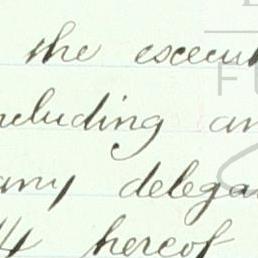 the execut
ncluding an
any delega
4 hereof